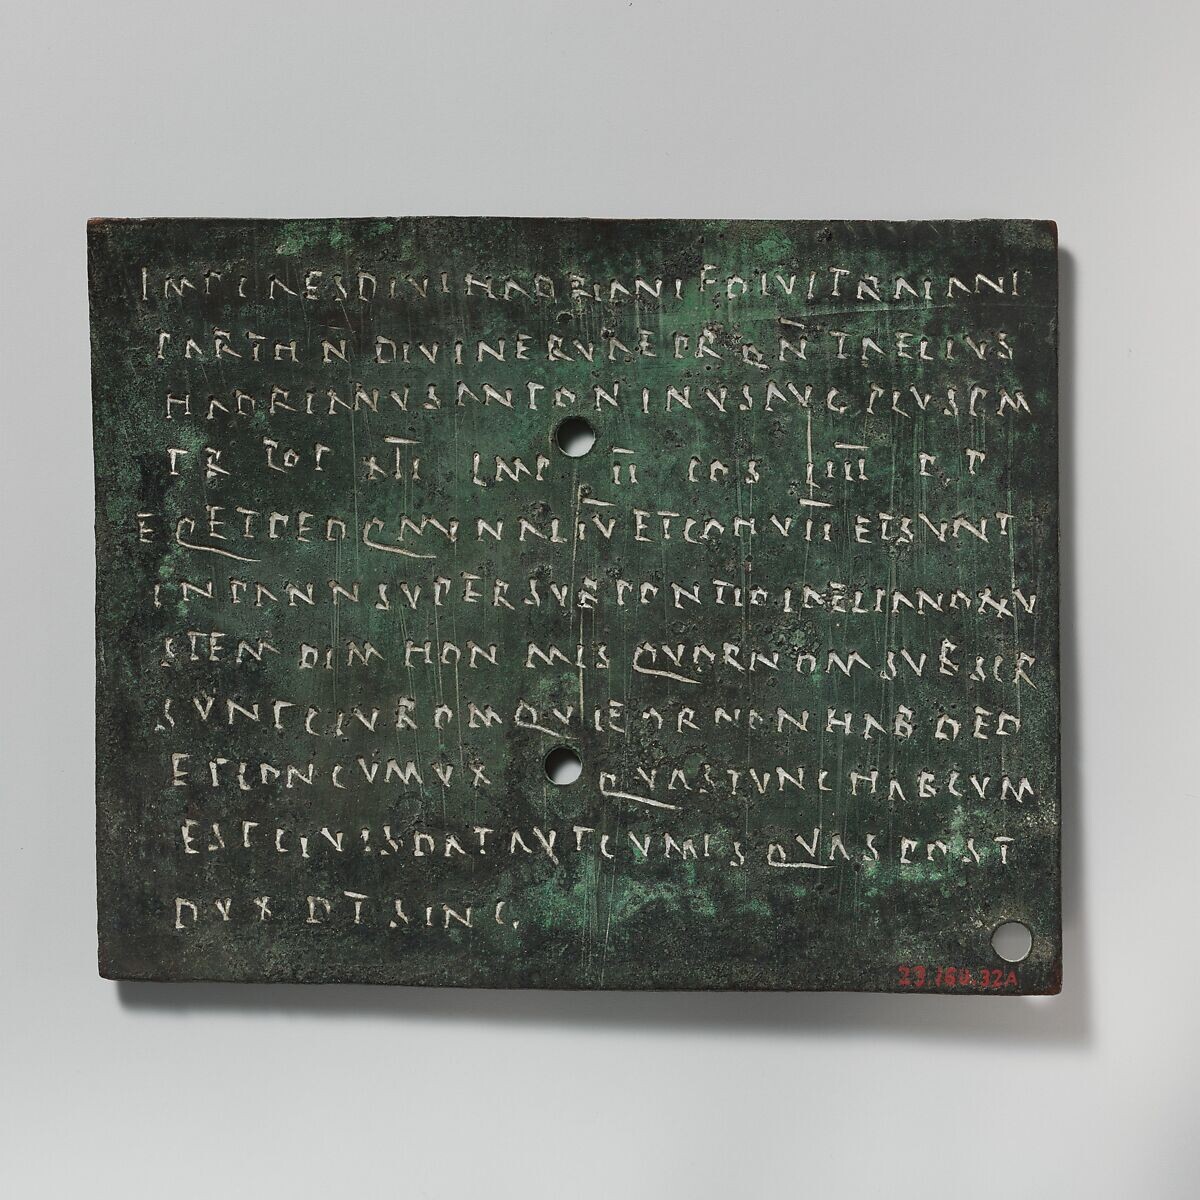 IMP CAES DIVI HADRIANI F DIVI TRAIANI
PARTH N DIVI NERVAE PR ON T AELIUS
HADRIANVS ANTONINVS AVG PIVS P M
TR POT XII IMP II COS IIII P P
EQ ET PED Q M IN AL IV ET COH VII ET SVNT
IN PANN SVPER SVB PONTIO LAELIANO XXV
STEM DIM HON MIS QVOR NOM SVB SCR
SVNT CIV ROM QVI EOR NON HAB DED
ET CON CVM VX QVAS TVNC HAB CVM
EST CIV IS DAT AVT CVM IS QVAS POST
DVX DT SING
23.160.32A